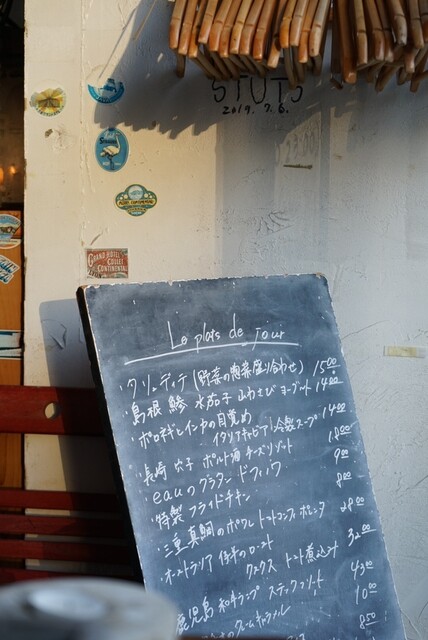 STUTS
2019. 7. 6.
GRAND HOTEL
COLLET
CONTINENTAL
Le plats de jour
・クリュディテ (野菜の惣菜盛り合わせ) 1500
・島根 鯵 水茄子 山わさび ヨーグルト 1400
・ポロネギとインカの目覚め
イタリアキャビア 冷製スープ 1400
・長崎 穴子 ポルト酒 チーズリゾット 1800
eauのグラタン ドフィノワ 900
・特製 フライドチキン 800
・三重 真鯛のポワレ トマトコンフィ 2800
・オーストラリア 仔羊のロースト
クスクス トマト煮込み 3200
鹿児島 和牛ランプ ステックフリット 4300
1000
850